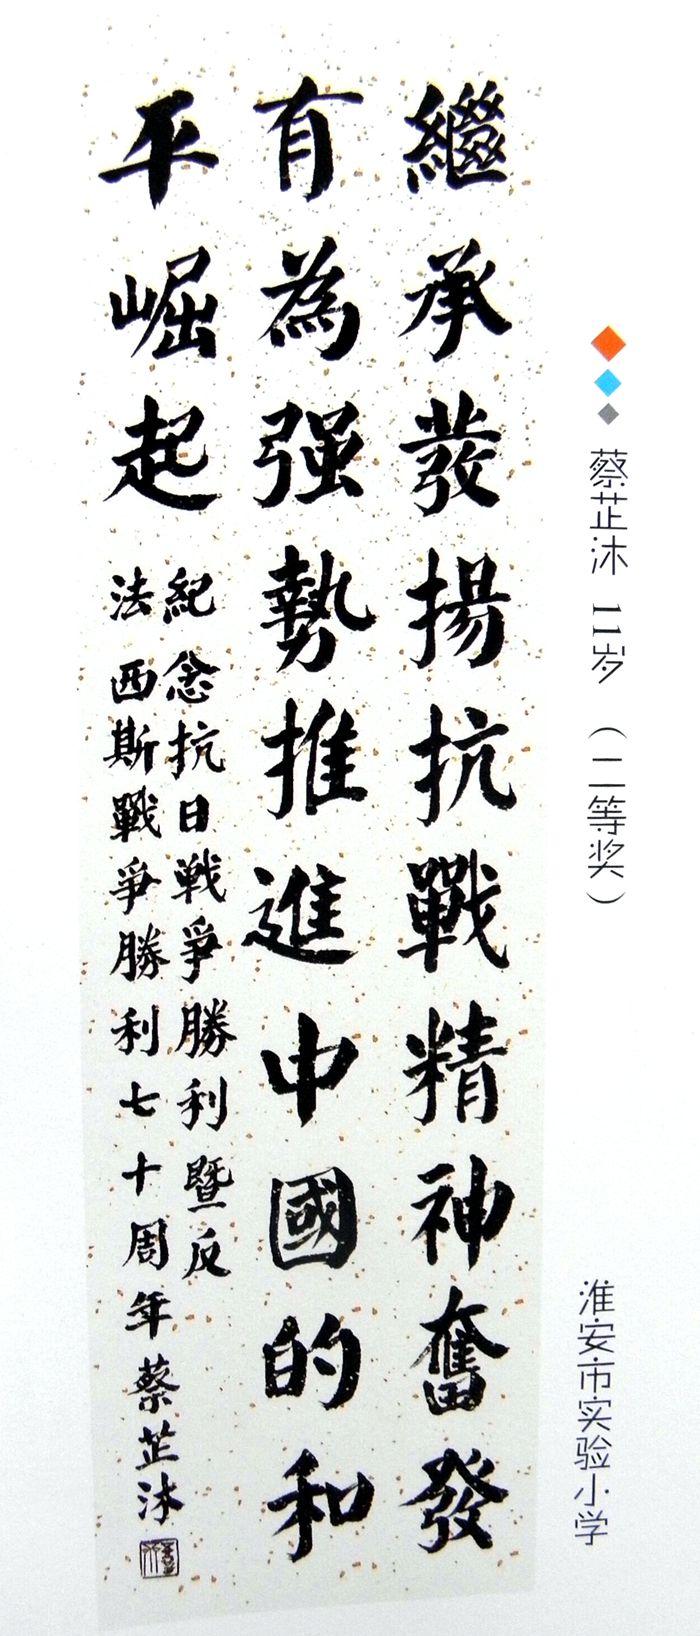 蔡芷沐 11岁 （二等奖）
淮安市实验小学
繼承發揚抗戰精神奮發
有為强勢推進中國的和
平崛起
紀念抗日戰爭勝利暨反
法西斯戰爭勝利七十周年蔡芷沐